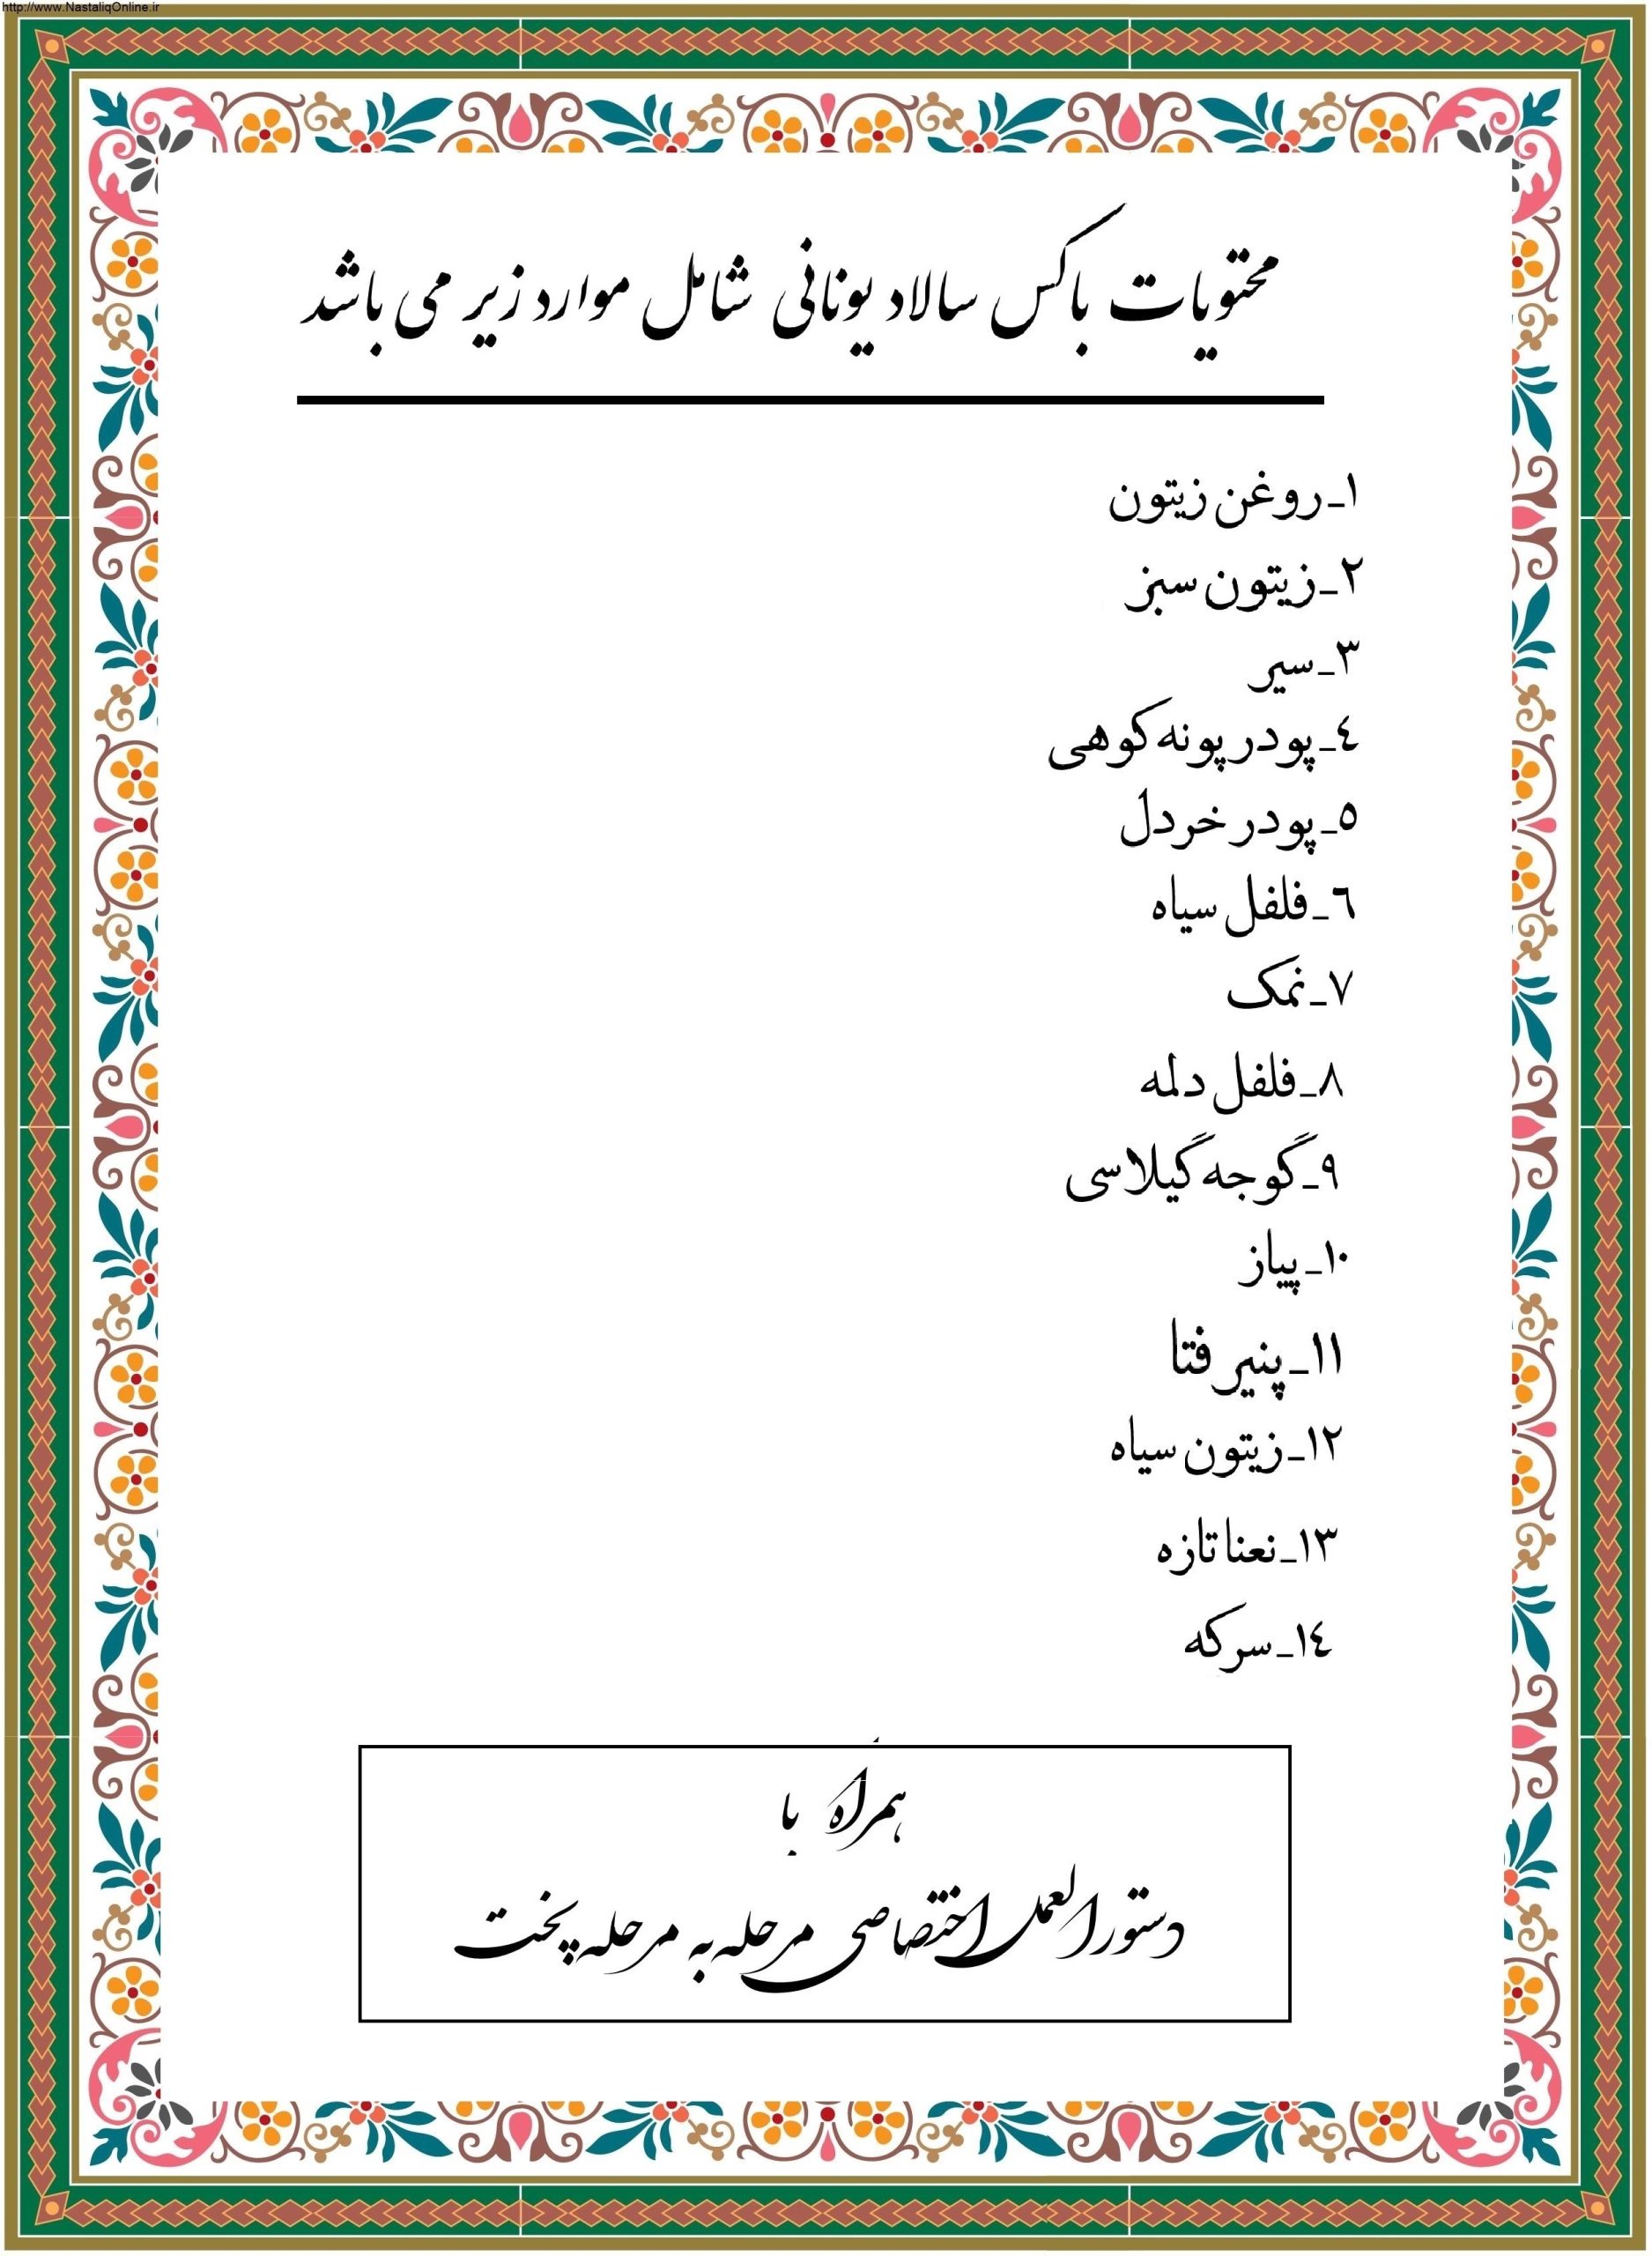 http://www.NastaliqOnline.ir
محتویات باکس سالاد یونانی شامل موارد زیر می باشد
١ـ روغن زیتون
٢ـ زیتون سبز
٣ـ سیر
٤ـ پودر پونه کوهی
٥ـ پودر خردل
٦ـ فلفل سیاه
٧ـ نمک
٨ـ فلفل دلمه
٩ـ گوجه گیلاسی
١٠ـ پیاز
١١ـ پنیر فتا
١٢ـ زیتون سیاه
١٣ـ نعنا تازه
١٤ـ سرکه
همراه با
دستورالعمل اختصاصی مرحله به مرحله پخت